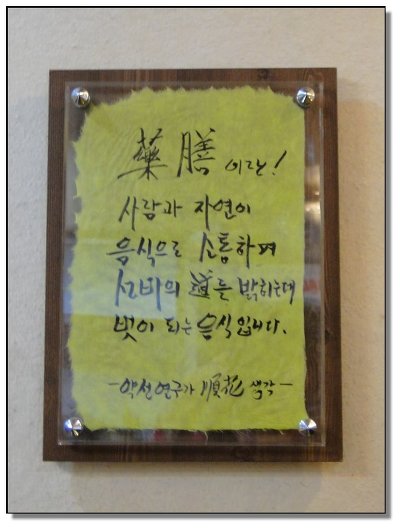 藥膳이란!
사람과 자연이
음식으로 소통하며
선비의 道를 밝히는데
벗이 되는 음식입니다.
-약선연구가 順花 생각-